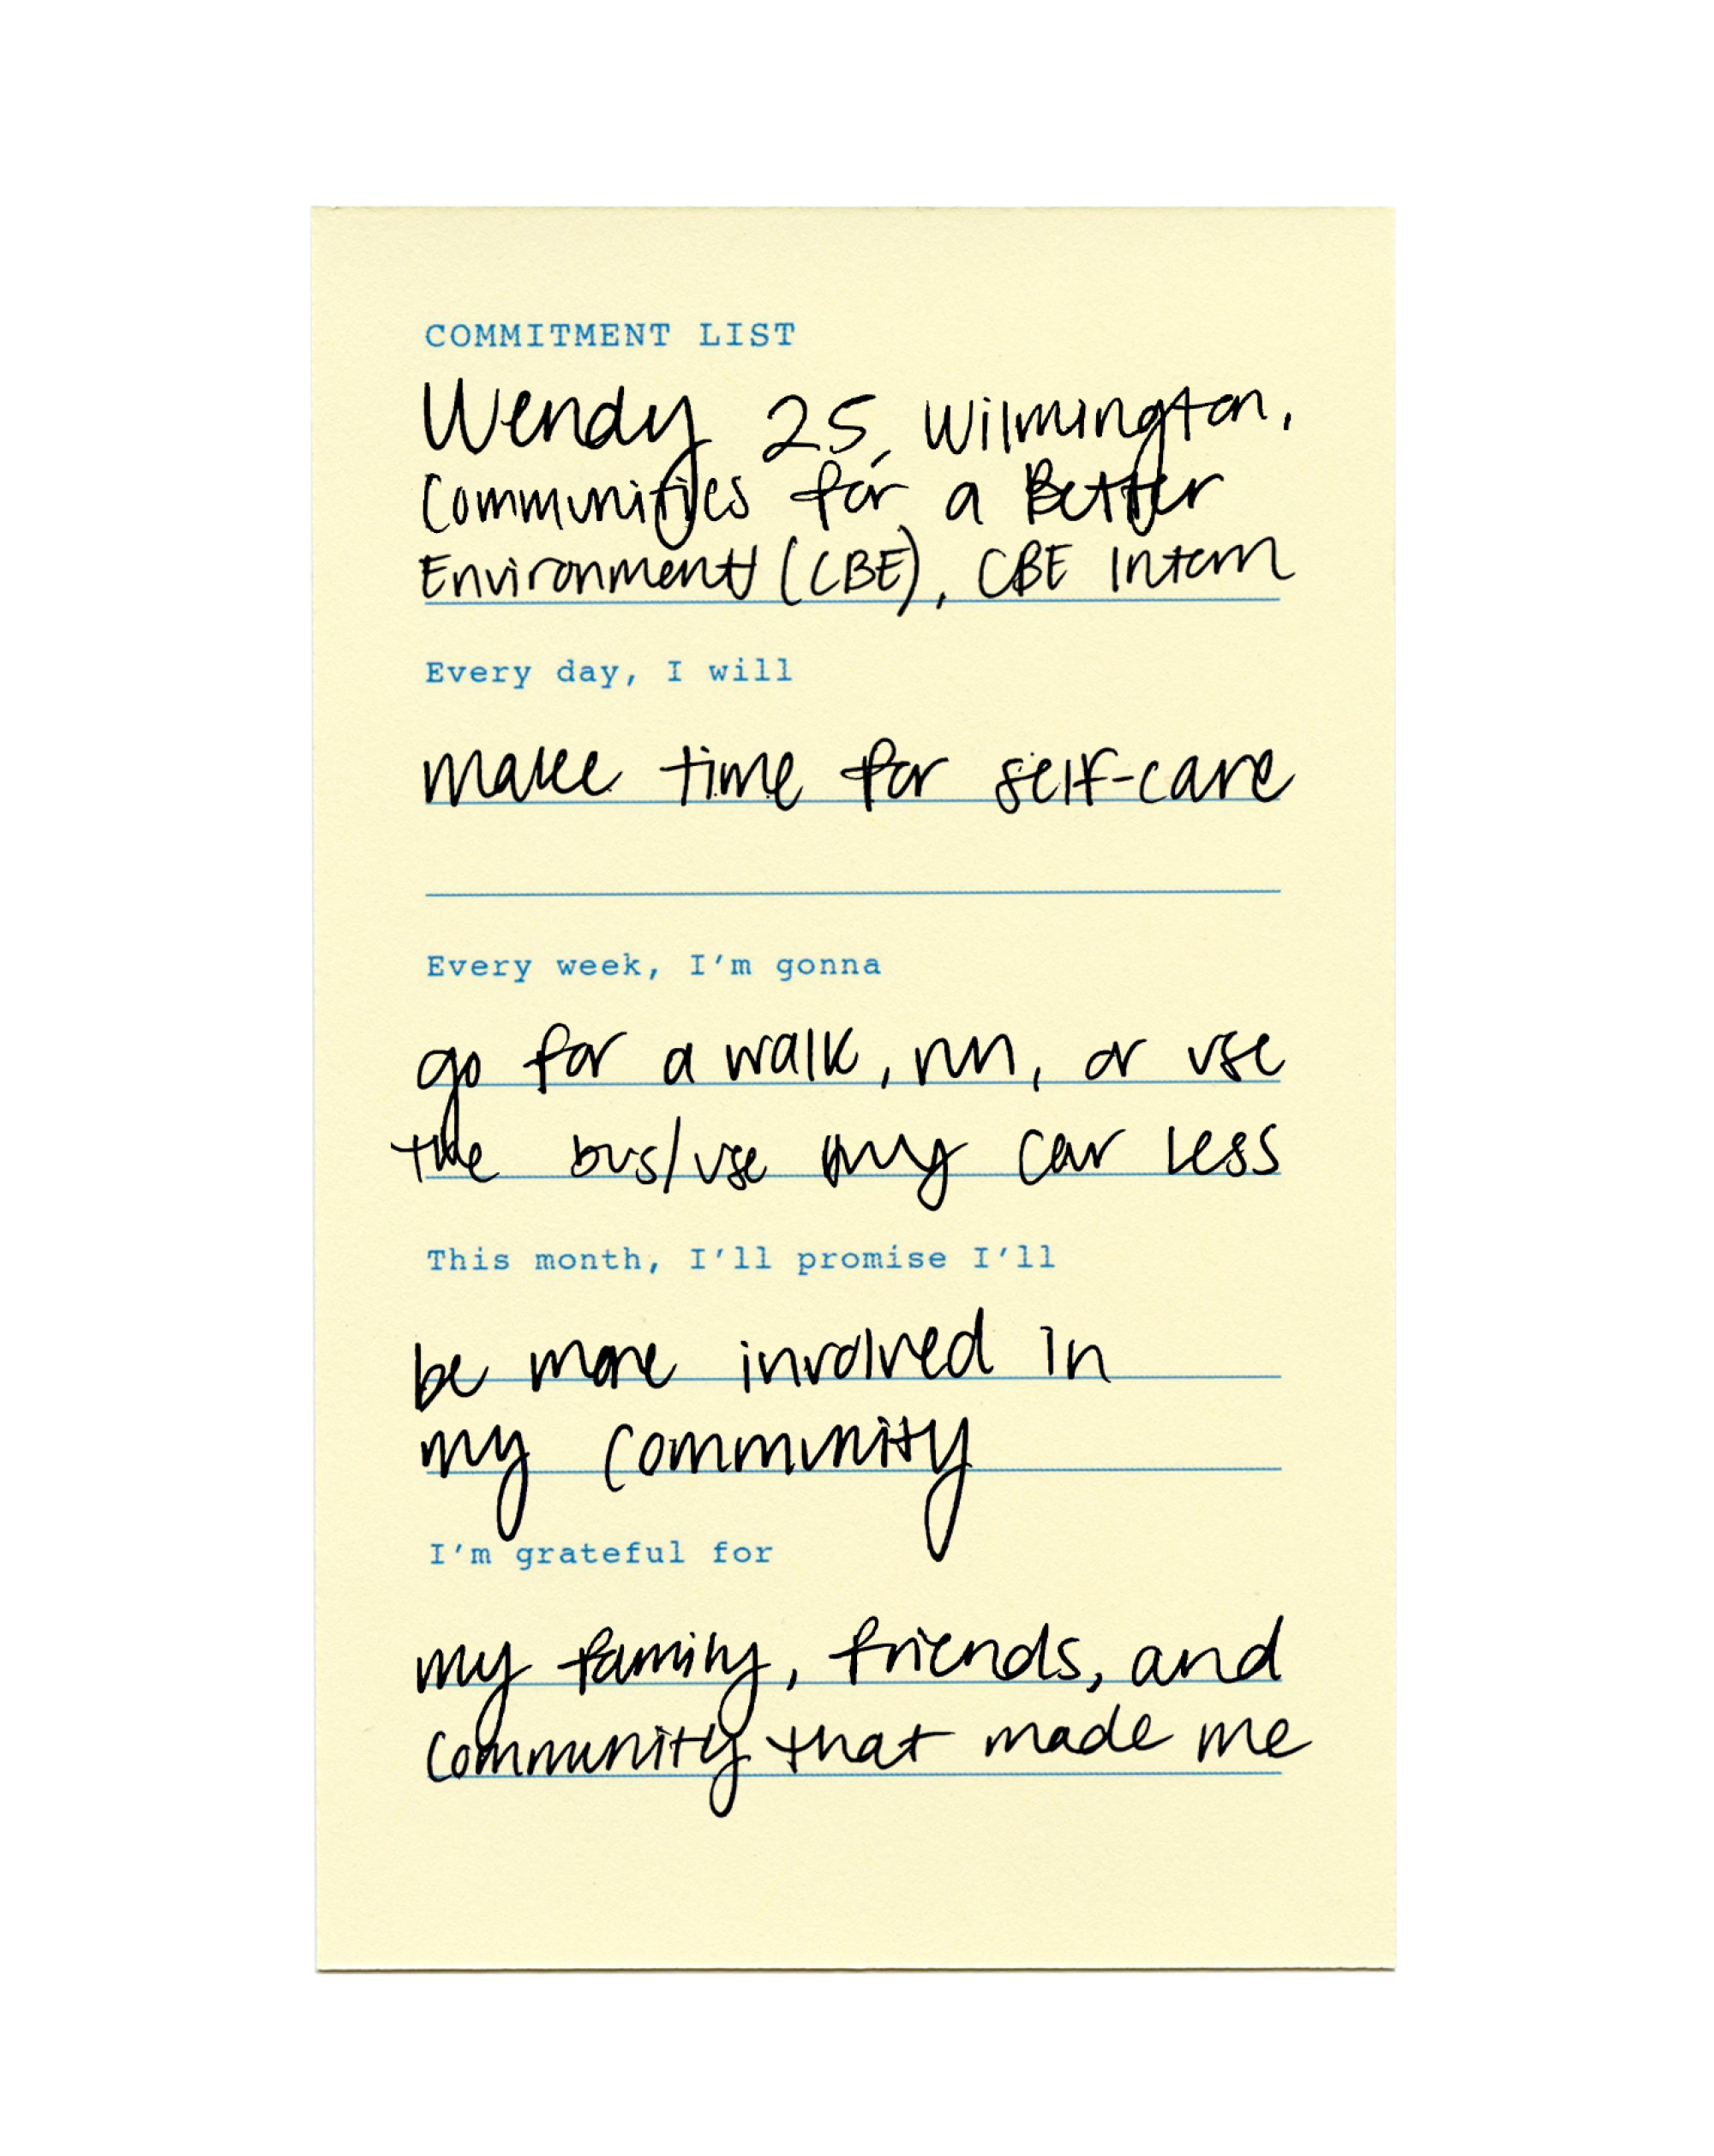 COMMITMENT LIST
Wendy 25, Wilmington,
Communities for a Better
Environment (CBE), CBE Intern
Every day, I will
make time for self-care
Every week, I'm gonna
go for a walk, run, or use
the bus/use my car less
This month, I'll promise I'll
be more involved in
my community
I'm grateful for
my family, friends, and
community that made me